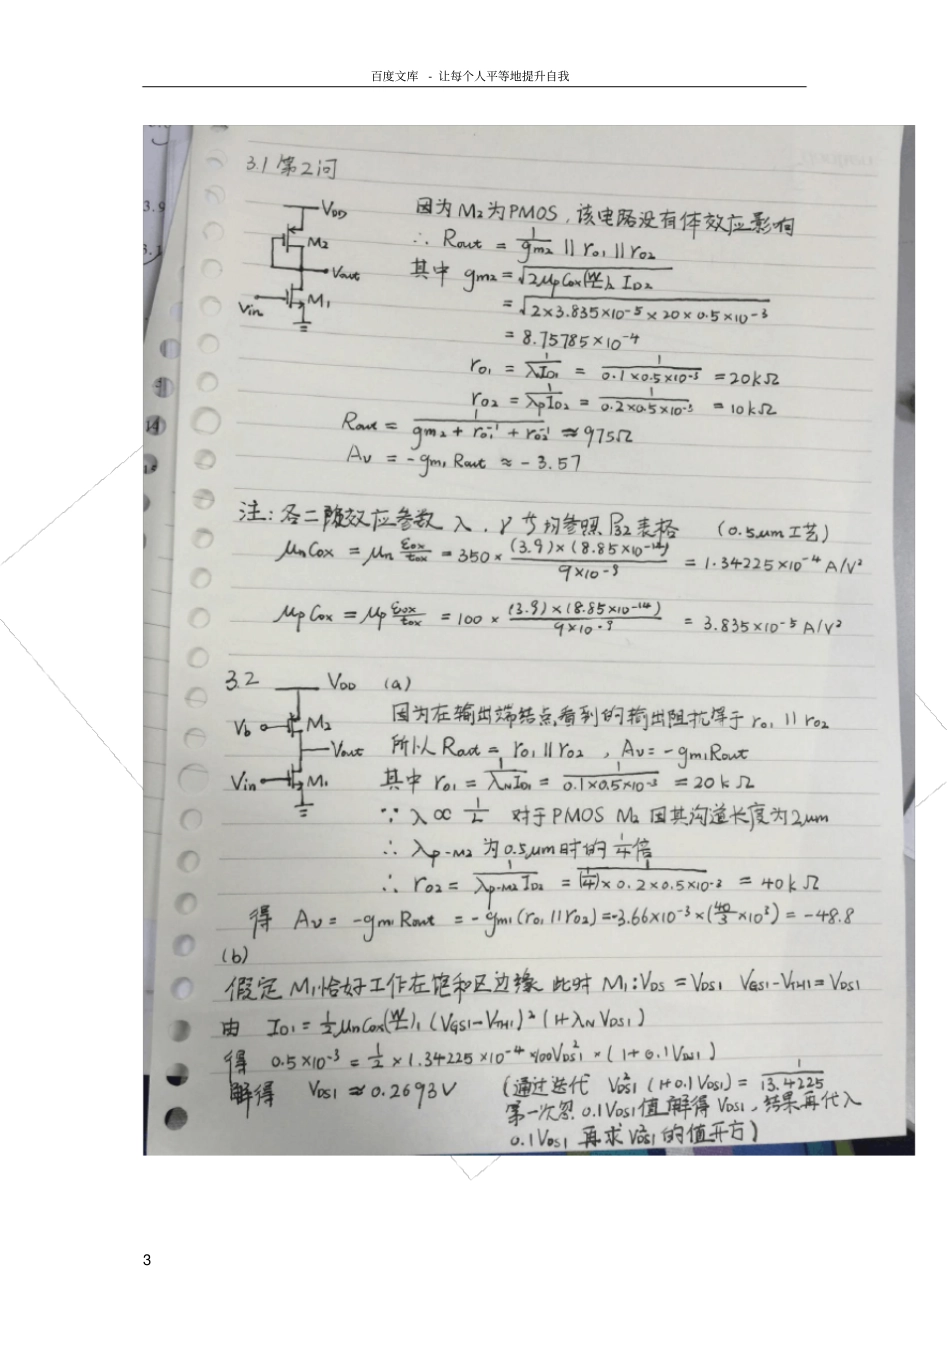 百度文库 - 让每个人平等地提升自我
3.1 第2问
VDD
M2
Vout
Vin
M1
因为M2为PMOS，该电路没有体效应影响
∴ Rout = 1/gm2 || ro1 || ro2
其中 gm2 = √(2μpCox(W/L)2 ID2)
= √(2×3.835×10⁻⁵×20×0.5×10⁻³)
= 8.75785×10⁻⁴
ro1 = 1/(λID1) = 1/(0.1×0.5×10⁻³) = 20kΩ
ro2 = 1/(λpID2) = 1/(0.2×0.5×10⁻³) = 10kΩ
Rout = 1/(gm2 + ro1⁻¹ + ro2⁻¹) ≈ 975Ω
Av = -gm1 Rout ≈ -3.57
注：各二阶效应参数 λ，γ 等均参照 表格 （0.5um工艺）
μnCox = μn εox/tox = 350 × (3.9)×(8.85×10⁻¹⁴)/(9×10⁻⁹) = 1.34225×10⁻⁴ A/V²
μpCox = μp εox/tox = 100 × (3.9)×(8.85×10⁻¹⁴)/(9×10⁻⁹) = 3.835×10⁻⁵ A/V²
3.2
VDD
Vb
M2
Vout
Vin
M1
(a)
因为在输出端结点看到的输出阻抗等于 ro1 || ro2
所以 Rout = ro1 || ro2 ，Av = -gm1Rout
其中 ro1 = 1/(λNID1) = 1/(0.1×0.5×10⁻³) = 20kΩ
∵ λ∝1/L 对于PMOS M2 因其沟道长度为2um
∴ λp-M2 为0.5um时的 1/4倍
∴ ro2 = 1/(λp-M2 ID2) = 1/((1/4)×0.2×0.5×10⁻³) = 40kΩ
得 Av = -gm1 Rout = -gm1(ro1||ro2) = -3.66×10⁻³×(40/3×10³) = -48.8
(b)
假定M1恰好工作在饱和区边缘 此时 M1：VDS = VDS1 VGS1-VTH1 = VDS1
由 ID1 = 1/2 μnCox(W/L)1 (VGS1-VTH1)² (1+λN VDS1)
得 0.5×10⁻³ = 1/2 × 1.34225×10⁻⁴ ×100VDS1² × (1+0.1VDS1)
解得 VDS1 ≈ 0.2693V （通过迭代 VDS1² (1+0.1VDS1) = 1/13.4225
第一次忽 0.1VDS1值 解得 VDS1，结果再代入
0.1VDS1 再求 VDS1² 的值开方）
3